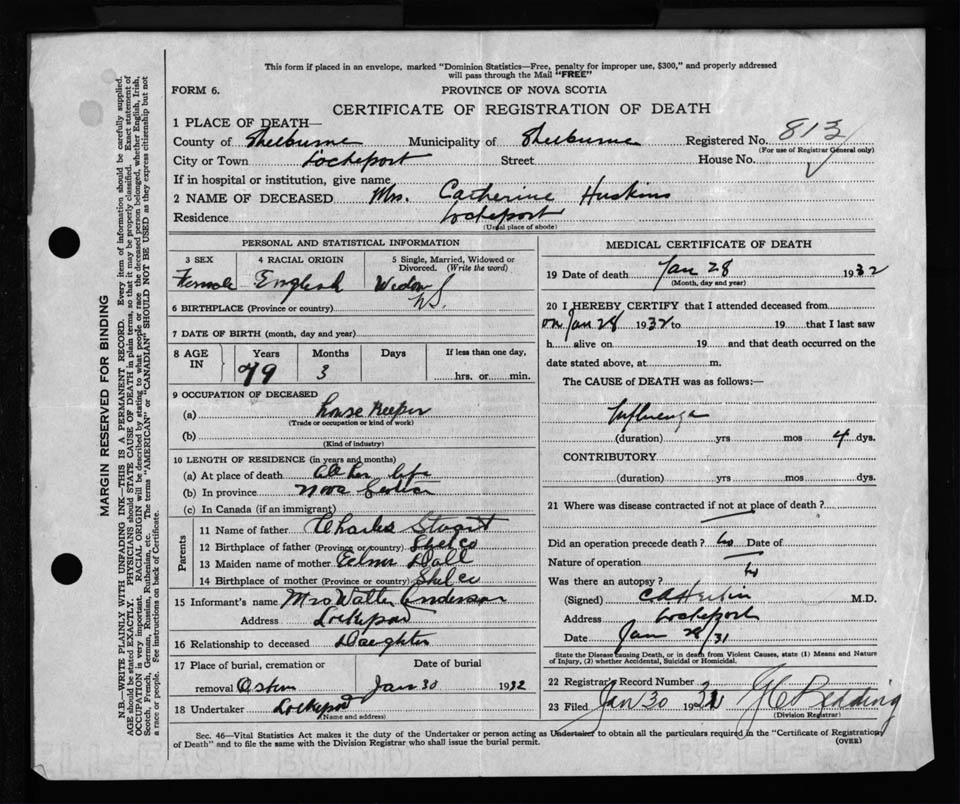 This form if placed in an envelope, marked "Dominion Statistics—Free, penalty for improper use, $300," and properly addressed
will pass through the Mail "FREE"
FORM 6.
PROVINCE OF NOVA SCOTIA
CERTIFICATE OF REGISTRATION OF DEATH
1 PLACE OF DEATH—
County of Shelburne Municipality of Shelburne Registered No. 813
(For use of Registrar General only)
City or Town Lockeport Street House No.
If in hospital or institution, give name
2 NAME OF DECEASED Mrs. Catherine Huskins
Residence Lockeport
(Usual place of abode)
PERSONAL AND STATISTICAL INFORMATION
3 SEX 4 RACIAL ORIGIN 5 Single, Married, Widowed or Divorced. (Write the word)
Female English Widow
6 BIRTHPLACE (Province or country) N.S.
7 DATE OF BIRTH (month, day and year)
8 AGE IN Years Months Days If less than one day,
79 3 hrs. or min.
9 OCCUPATION OF DECEASED
(a) House Keeper
(Trade or occupation or kind of work)
(b)
(Kind of industry)
10 LENGTH OF RESIDENCE (in years and months)
(a) At place of death All her life
(b) In province Nova Scotia
(c) In Canada (if an immigrant)
Parents
11 Name of father Charles Stuart
12 Birthplace of father (Province or country) Shel co
13 Maiden name of mother
14 Birthplace of mother (Province or country) Shel co
15 Informant's name Mrs Walter Anderson
Address Lockeport
16 Relationship to deceased Daughter
17 Place of burial, cremation or Date of burial
removal Jan 30 1932
18 Undertaker Lockeport
(Name and address)
MEDICAL CERTIFICATE OF DEATH
19 Date of death Jan 28 1932
(Month, day and year)
20 I HEREBY CERTIFY that I attended deceased from
on Jan 28 1932 to 19 that I last saw
h alive on 19 and that death occurred on the
date stated above, at m.
The CAUSE of DEATH was as follows:—
Influenza
(duration) yrs mos 4 dys.
CONTRIBUTORY
(duration) yrs mos dys.
21 Where was disease contracted if not at place of death?
Did an operation precede death? No Date of
Nature of operation
Was there an autopsy?
(Signed) M.D.
Address Lockeport
Date Jan 28/31
State the Disease Causing Death, or in death from Violent Causes, state (1) Means and Nature
of Injury, (2) whether Accidental, Suicidal or Homicidal.
22 Registrars Record Number
23 Filed Jan 30 1932 Redding
(Division Registrar)
Sec. 46—Vital Statistics Act makes it the duty of the Undertaker or person acting as Undertaker to obtain all the particulars required in the "Certificate of Registration
of Death" and to file the same with the Division Registrar who shall issue the burial permit.
(OVER)
MARGIN RESERVED FOR BINDING
N.B.—WRITE PLAINLY WITH UNFADING INK—THIS IS A PERMANENT RECORD. Every item of information should be carefully supplied.
AGE should be stated EXACTLY. PHYSICIANS should STATE CAUSE OF DEATH in plain terms, so that it may be properly classified. Exact statement of
OCCUPATION is very important. RACIAL ORIGIN will be described by stating to what people or race the deceased person belonged, whether English, Irish,
Scotch, French, German, Russian, Ruthenian, etc. The terms "AMERICAN" or "CANADIAN" SHOULD NOT BE USED as they express citizenship but not
a race or people. See instructions on back of Certificate.